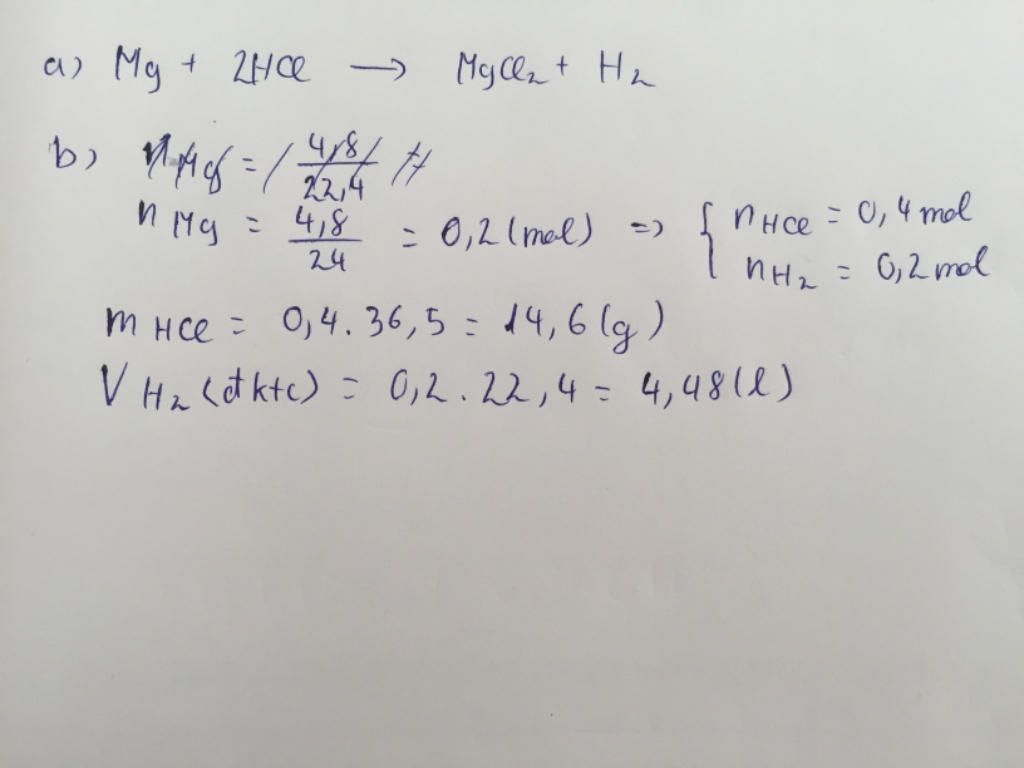 a) Mg + 2HCl → MgCl₂ + H₂
b) nMg = 4,8/22,4
nMg = 4,8/24 = 0,2 (mol) => { nHCl = 0,4 mol
nH₂ = 0,2 mol
mHCl = 0,4 . 36,5 = 14,6 (g)
VH₂ (đktc) = 0,2 . 22,4 = 4,48 (l)